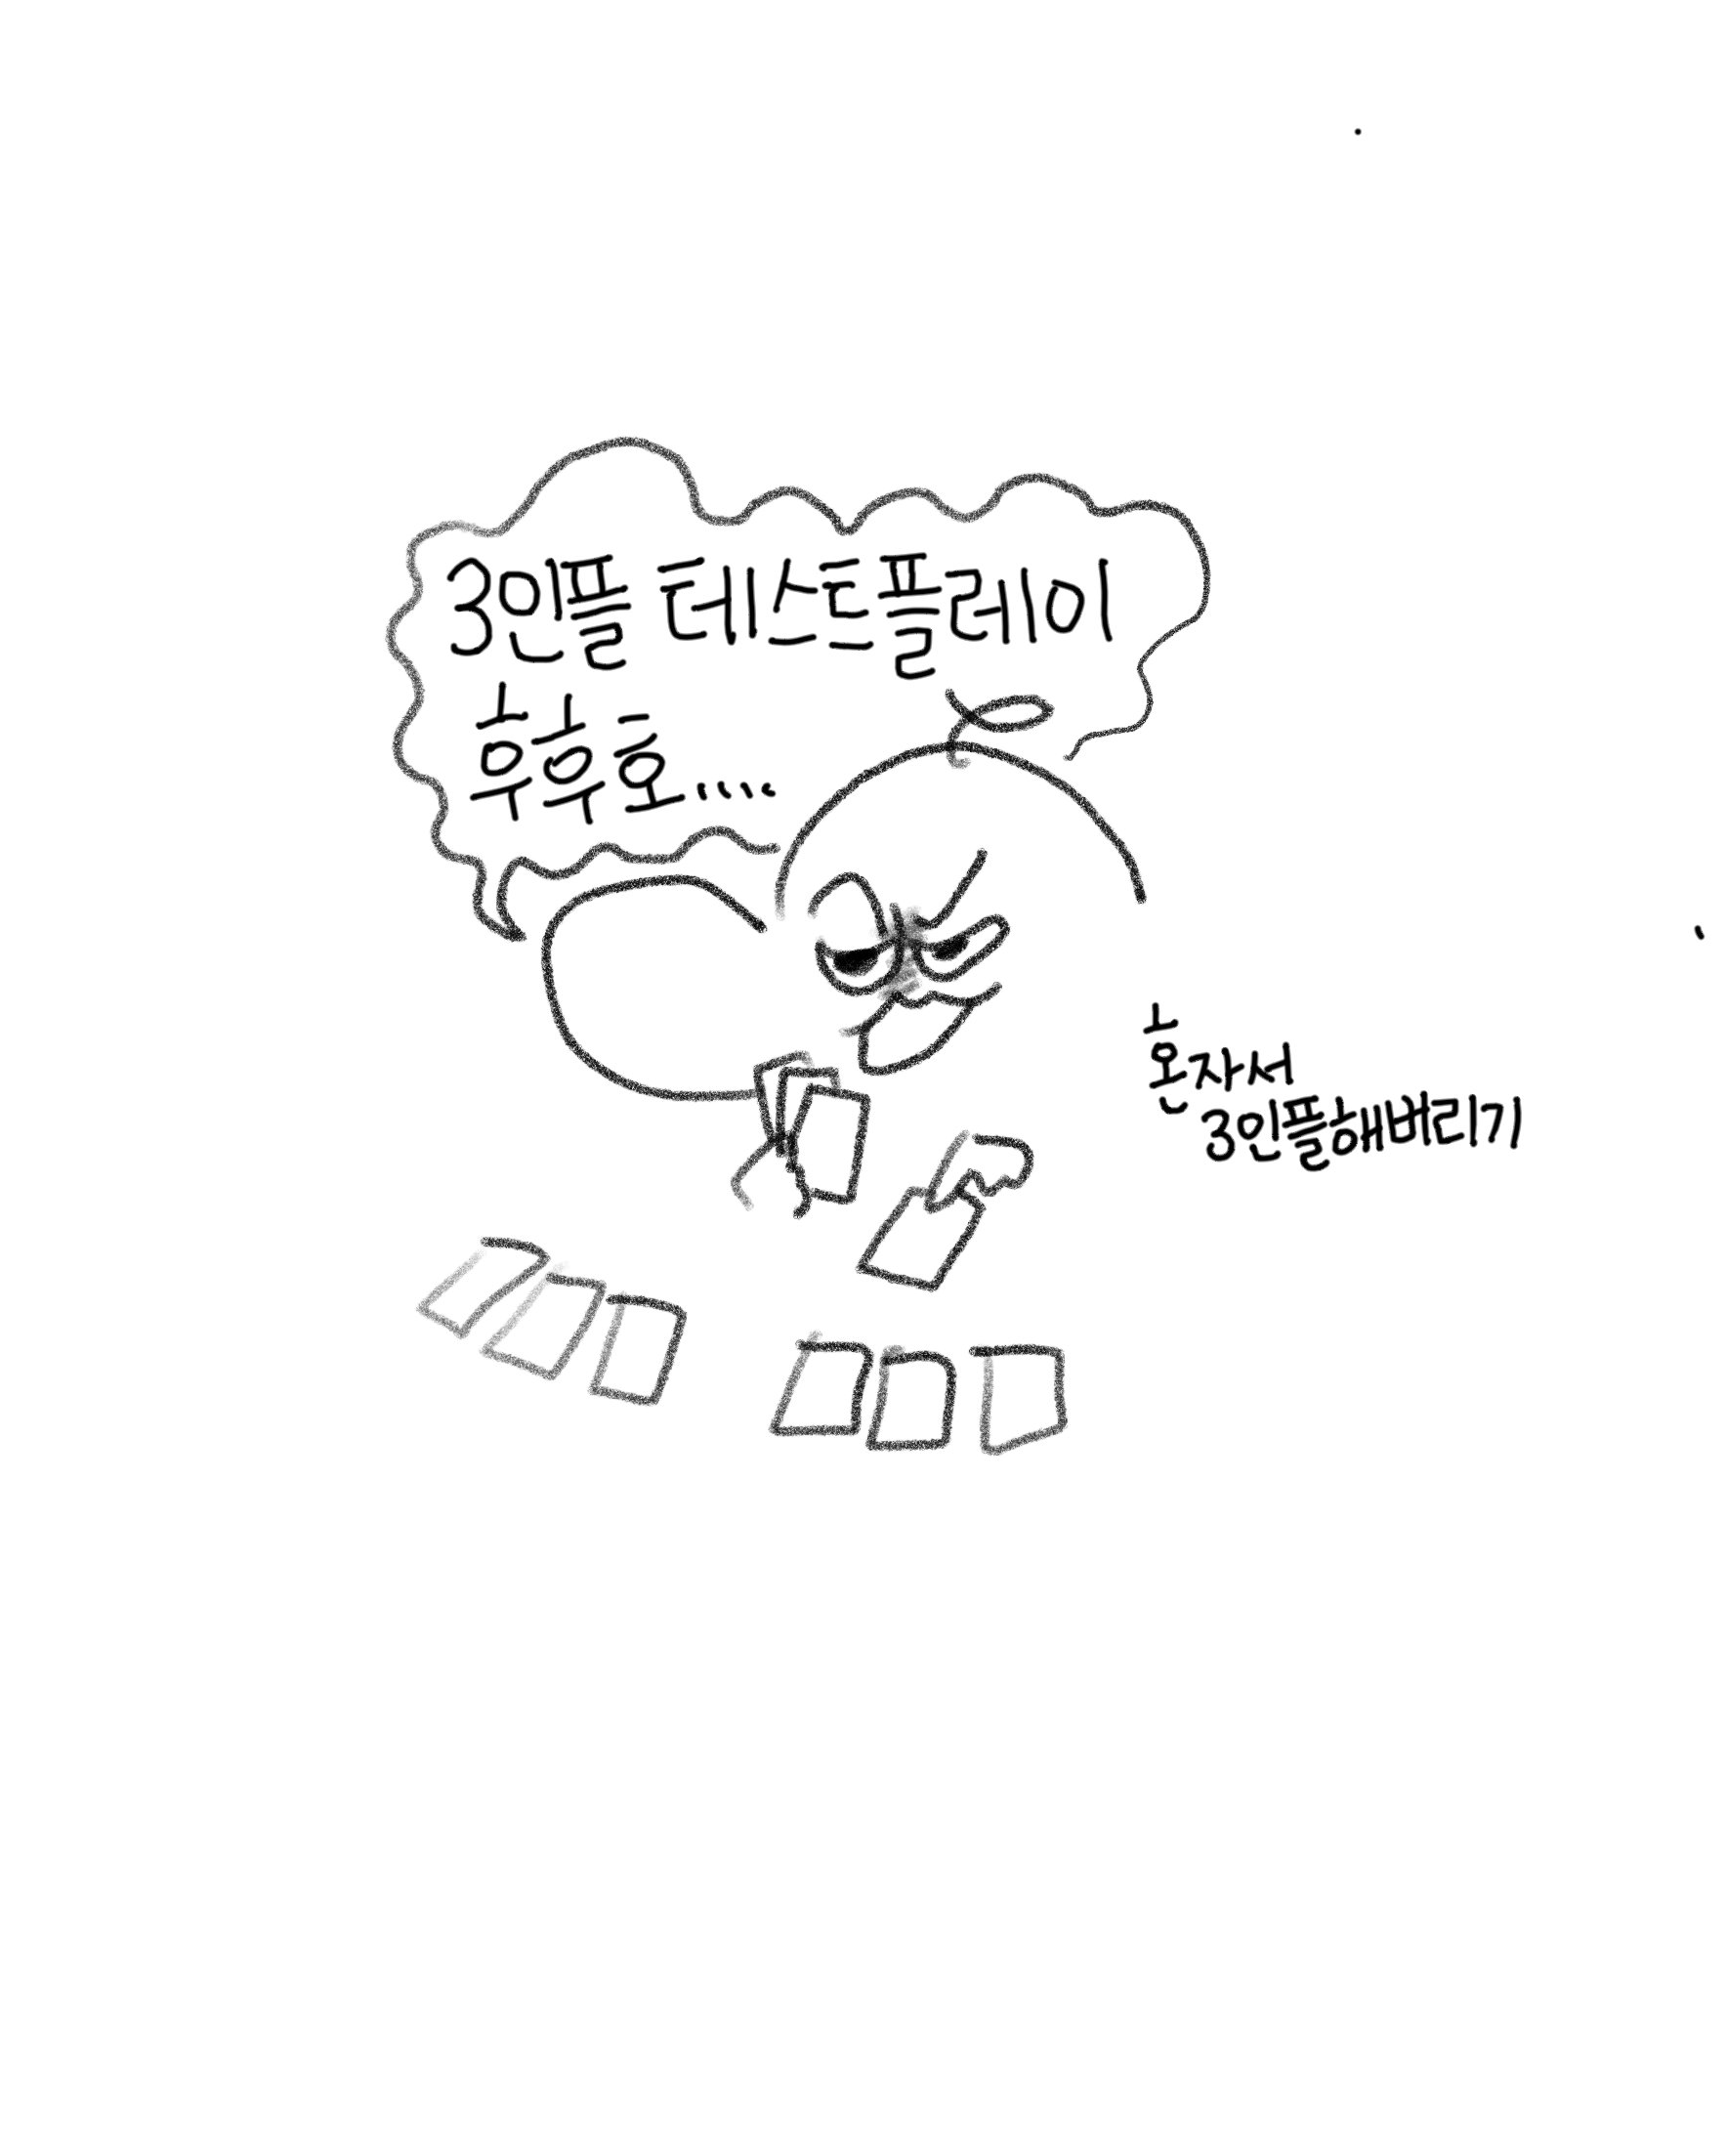 3인플 테스트플레이
후후호....
혼자서
3인플해버리기